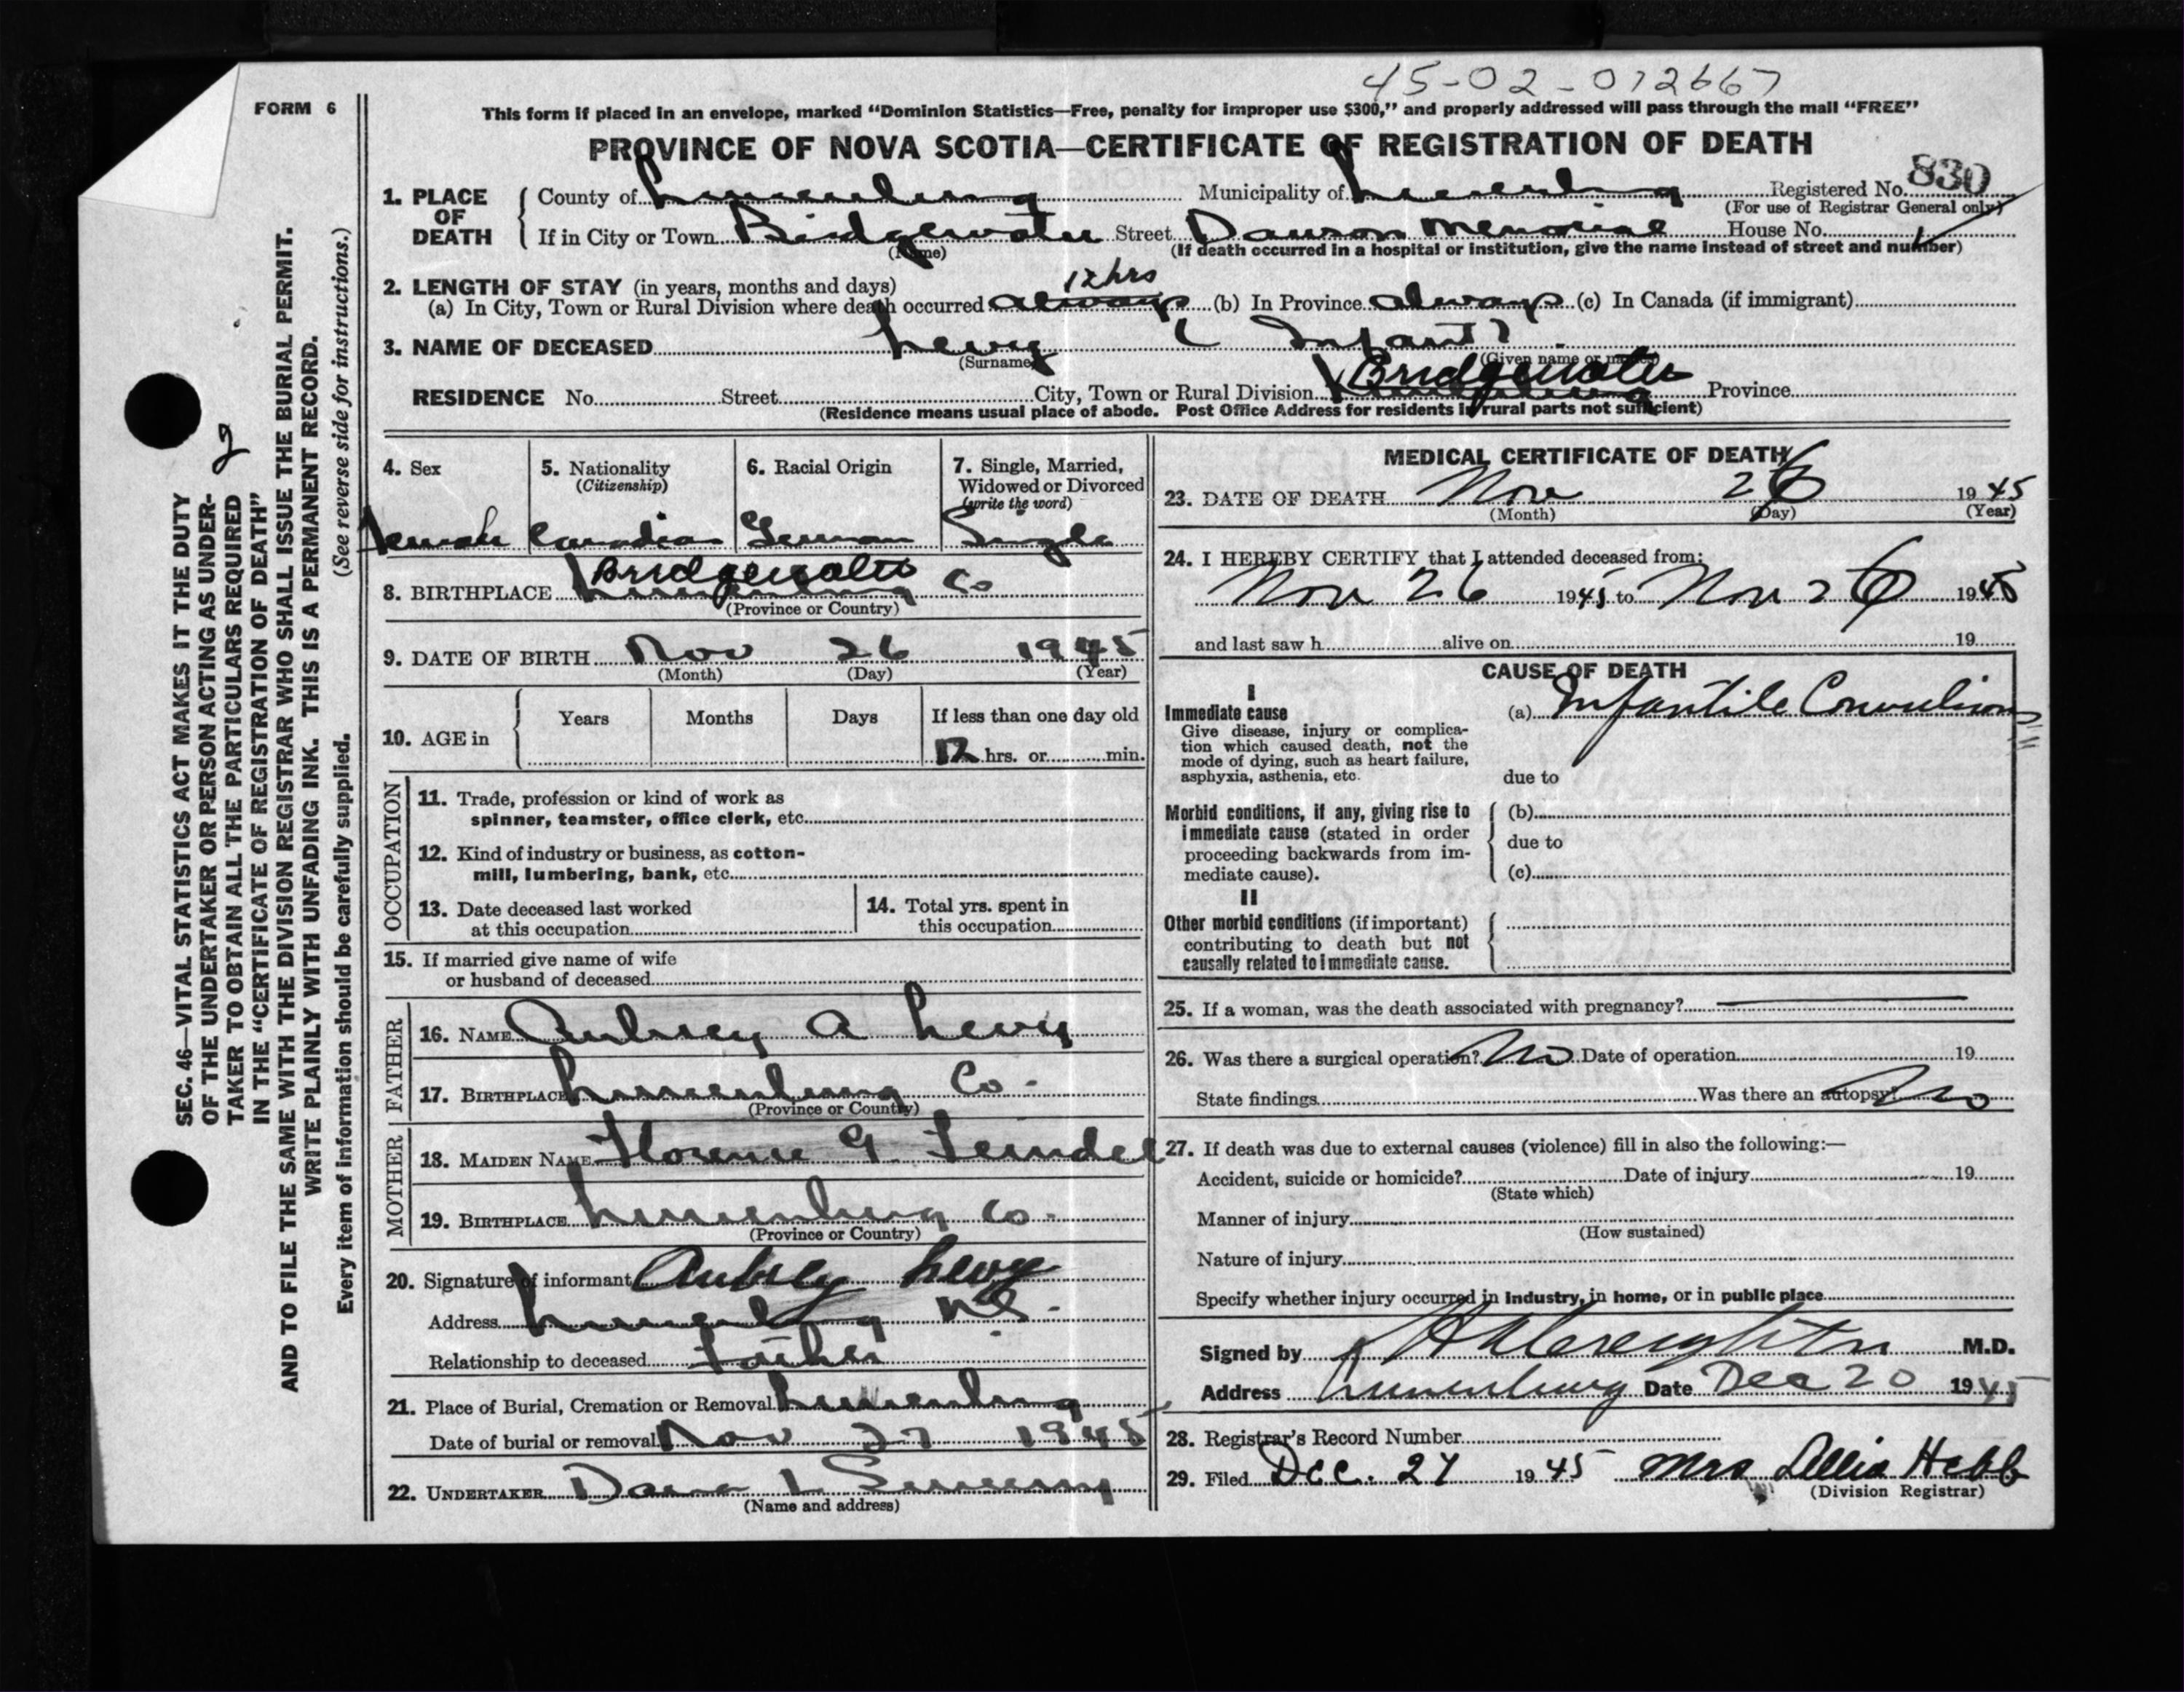 45-02-012667
FORM 6
This form if placed in an envelope, marked “Dominion Statistics—Free, penalty for improper use $300,” and properly addressed will pass through the mail “FREE”
PROVINCE OF NOVA SCOTIA—CERTIFICATE OF REGISTRATION OF DEATH
1. PLACE OF DEATH
County of Lunenburg Municipality of Lunenburg Registered No. 830
(For use of Registrar General only)
If in City or Town Bridgewater Street Dawson Memorial House No.
(Name) (If death occurred in a hospital or institution, give the name instead of street and number)
2. LENGTH OF STAY (in years, months and days) 12 hrs
(a) In City, Town or Rural Division where death occurred always (b) In Province always (c) In Canada (if immigrant)
3. NAME OF DECEASED Levy (Infant)
(Surname) (Given name or names)
RESIDENCE No. Street City, Town or Rural Division Bridgewater Province
(Residence means usual place of abode. Post Office Address for residents in rural parts not sufficient)
4. Sex 5. Nationality 6. Racial Origin 7. Single, Married,
(Citizenship) Widowed or Divorced
(write the word)
Female Canadian German Single
8. BIRTHPLACE Bridgewater Lunenburg Co
(Province or Country)
9. DATE OF BIRTH Nov 26 1945
(Month) (Day) (Year)
10. AGE in Years Months Days If less than one day old
12 hrs. or min.
OCCUPATION
11. Trade, profession or kind of work as
spinner, teamster, office clerk, etc.
12. Kind of industry or business, as cotton-
mill, lumbering, bank, etc.
13. Date deceased last worked
at this occupation
14. Total yrs. spent in
this occupation
15. If married give name of wife
or husband of deceased
FATHER
16. NAME Aubrey A Levy
17. BIRTHPLACE Lunenburg Co.
(Province or Country)
MOTHER
18. MAIDEN NAME Florence G.
19. BIRTHPLACE Lunenburg Co.
(Province or Country)
20. Signature of informant Aubrey Levy
Address Lunenburg NS.
Relationship to deceased Father
21. Place of Burial, Cremation or Removal Lunenburg
Date of burial or removal Nov 27 1945
22. UNDERTAKER Dana L Sweeny
(Name and address)
MEDICAL CERTIFICATE OF DEATH
23. DATE OF DEATH Nov 26 1945
(Month) (Day) (Year)
24. I HEREBY CERTIFY that I attended deceased from:
Nov 26 1945 to Nov 26 1945
and last saw h alive on 19
CAUSE OF DEATH
I
Immediate cause (a) Infantile Convulsions
Give disease, injury or complica-
tion which caused death, not the
mode of dying, such as heart failure,
asphyxia, asthenia, etc. due to
Morbid conditions, if any, giving rise to (b)
immediate cause (stated in order due to
proceeding backwards from im-
mediate cause). (c)
II
Other morbid conditions (if important)
contributing to death but not
causally related to immediate cause.
25. If a woman, was the death associated with pregnancy?
26. Was there a surgical operation? No Date of operation 19
State findings Was there an autopsy? No
27. If death was due to external causes (violence) fill in also the following:—
Accident, suicide or homicide? Date of injury 19
(State which)
Manner of injury
(How sustained)
Nature of injury
Specify whether injury occurred in industry, in home, or in public place
Signed by Creighton M.D.
Address Lunenburg Date Dec 20 1945
28. Registrar's Record Number
29. Filed Dec. 27 1945 Mrs Hebb
(Division Registrar)
SEC. 46—VITAL STATISTICS ACT MAKES IT THE DUTY
OF THE UNDERTAKER OR PERSON ACTING AS UNDER-
TAKER TO OBTAIN ALL THE PARTICULARS REQUIRED
IN THE “CERTIFICATE OF REGISTRATION OF DEATH”
AND TO FILE THE SAME WITH THE DIVISION REGISTRAR WHO SHALL ISSUE THE BURIAL PERMIT.
WRITE PLAINLY WITH UNFADING INK. THIS IS A PERMANENT RECORD.
Every item of information should be carefully supplied. (See reverse side for instructions.)
2